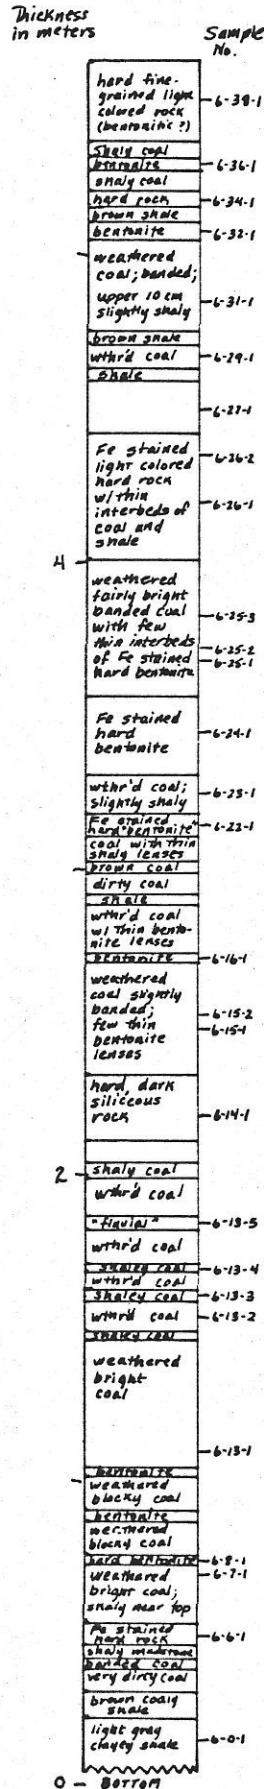 Thickness
in meters
Sample
No.
hard fine-
grained light
colored rock
(bentonitic ?)
6-38-1
shaly coal
bentonite
6-36-1
shaly coal
hard rock
6-34-1
brown shale
bentonite
6-32-1
weathered
coal; banded;
upper 10 cm
slightly shaly
6-31-1
brown shale
wthr'd coal
6-29-1
shale
6-27-1
Fe stained
light colored
hard rock
w/thin
interbeds of
coal and
shale
6-26-2
6-26-1
4
weathered
fairly bright
banded coal
with few
thin interbeds
of Fe stained
hard bentonite
6-25-3
6-25-2
6-25-1
Fe stained
hard
bentonite
6-24-1
wthr'd coal;
slightly shaly
6-23-1
Fe stained
hard "bentonite"
6-22-1
coal with thin
shaly lenses
brown coal
dirty coal
shale
wthr'd coal
w/ thin bento-
nite lenses
bentonite
6-16-1
weathered
coal slightly
banded;
few thin
bentonite
lenses
6-15-2
6-15-1
hard, dark
siliceous
rock
6-14-1
2
shaly coal
wthr'd coal
"fluvial"
6-13-5
wthr'd coal
shaley coal
6-13-4
wthr'd coal
shaley coal
6-13-3
wthr'd coal
6-13-2
shaley coal
weathered
bright
coal
6-13-1
bentonite
weathered
blocky coal
bentonite
weathered
blocky coal
hard bentonite
6-8-1
weathered
bright coal;
shaly near top
6-7-1
Fe stained
hard rock
6-6-1
shaly mudstone
banded coal
very dirty coal
brown coaly
shale
light gray
clayey shale
6-0-1
0
BOTTOM